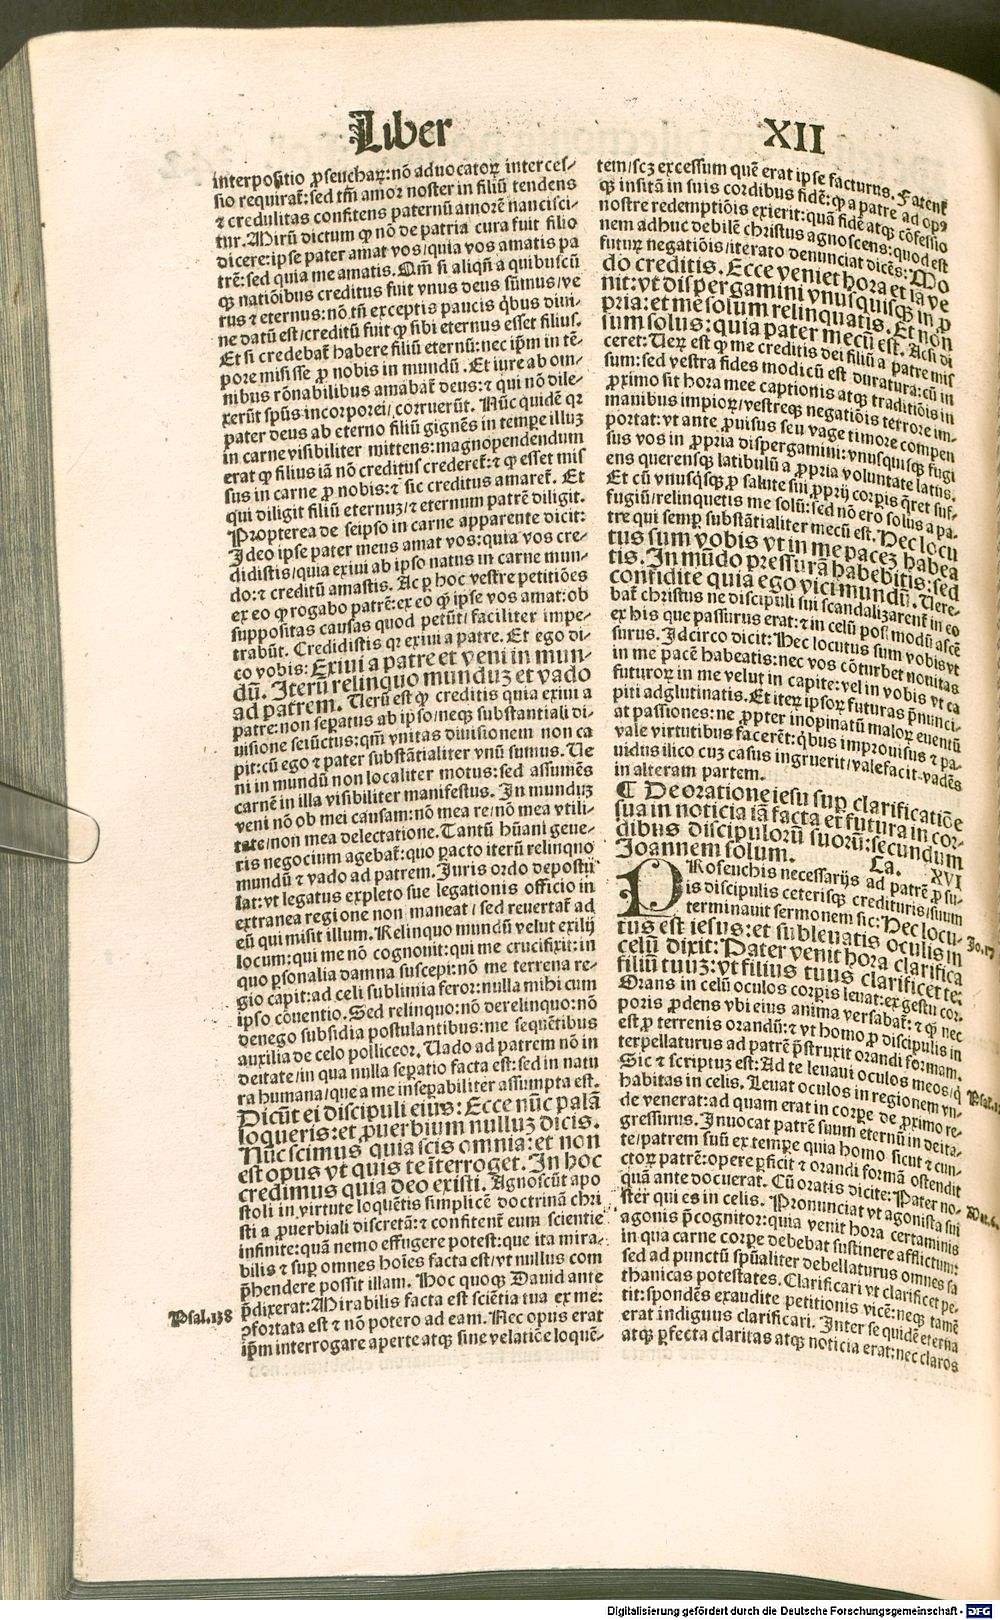 Liber XII
interpositio ꝓseuchaꝝ: nō aduocatoꝝ interces-
sio requirat̄: sed tm̄ amor noster in filiū tendens
⁊ credulitas confitens paternū amorē nancisci-
tur. Mirū dictum ꝙ nō de patria cura fuit filio
dicere: ipse pater amat vos/quia vos amatis pa
trē: sed quia me amatis. Qm̄ si aliqn̄ a quibuscū
qꝫ natiōibus creditus fuit vnus deus sūmus/ve
rus ⁊ eternus: nō tn̄ exceptis paucis qͥbus diui-
ne datū est/creditū fuit ꝙ sibi eternus esset filius.
Et si credebat̄ habere filiū eternū: nec ip̄m in tē-
pore misisse ꝓ nobis in mundū. Et iure ab om-
nibus rōnabilibus amabat̄ deus: ⁊ qui nō dile-
xerūt spūs incorporei/corruerūt. Nūc quidē qꝛ
pater deus ab eterno filiū gignēs in tempe illuꝫ
in carne visibiliter mittens: magnopendendum
erat ꝙ filius iā nō creditus crederet̄: ⁊ ꝙ esset mis
sus in carne ꝓ nobis: ⁊ sic creditus amaret̄. Et
qui diligit filiū eternuꝫ/⁊ eternum patrē diligit.
Propterea de seipso in carne apparente dicit:
Ideo ipse pater meus amat vos: quia vos cre-
didistis/quia exiui ab ipso natus in carne mun-
do: ⁊ creditū amastis. Ac ꝑ hoc vestre petitiōes
ex eo ꝙ rogabo patrē: ex eo ꝙ ipse vos amat: ob
suppositas causas quod petūt/faciliter impe-
trabūt. Credidistis qꝛ exiui a patre. Et ego di-
co vobis: Exiui a patre et veni in mun-
dū. Iterū relinquo munduꝫ et vado
ad patrem. Uerū est ꝙ creditis quia exiui a
patre: non seꝑatus ab ipso/neqꝫ substantiali di-
uisione seiūctus: qm̄ vnitas diuisionem non ca
pit: cū ego ⁊ pater substātialiter vnū sumus. Ue
ni in mundū non localiter motus: sed assumēs
carnē in illa visibiliter manifestus. In munduꝫ
veni nō ob mei causam: nō mea re/nō mea vtili-
tate/non mea delectatione. Tantū hūani gene-
ris negocium agebat̄: quo pacto iterū relinquo
mundū ⁊ vado ad patrem. Iuris ordo depostu
lat: vt legatus expleto sue legationis officio in
extranea regione non maneat/sed reuertat̄ ad
eū qui misit illum. Relinquo mundū velut exilij
locum: qui me nō cognouit: qui me crucifixit: in
quo ꝑsonalia damna suscepi: nō me terrena re-
gio capit: ad celi sublimia feror: nulla mihi cum
ipso cōuentio. Sed relinquo: nō derelinquo: nō
denego subsidia postulantibus: me sequētibus
auxilia de celo polliceor. Uado ad patrem nō in
deitate/in qua nulla seꝑatio facta est: sed in natu
ra humana/que a me inseꝑabiliter assumpta est.
Dicūt ei discipuli eius: Ecce nūc palā
loqueris: et ꝓuerbium nulluꝫ dicis.
Nūc scimus quia scis omnia: et non
est opus vt quis te īterroget. In hoc
credimus quia deo existi. Agnoscūt apo
stoli in virtute loquētis simplicē doctrinā chri
sti a ꝓuerbiali discretā: ⁊ confitent̄ eum scientie
infinite: quā nemo effugere potest: que ita mira-
bilis ⁊ suꝑ omnes hoīes facta est/vt nullus com
p̄hendere possit illam. Hoc quoqꝫ Dauid ante
p̄dixerat: Mirabilis facta est sciētia tua ex me:
ꝯfortata est ⁊ nō potero ad eam. Nec opus erat
ip̄m interrogare aperte atqꝫ sine velatiōe loquē-
Psal.138
tem/scꝫ excessum quē erat ipse facturus. Fatent̄
qꝫ insitā in suis cordibus fidē: ꝙ a patre ad opꝰ
nostre redemptiōis exierit: quā fidē atqꝫ cōfessio
nem adhuc debilē christus agnoscens: quod est
futuꝝ negatiōis/iterato denunciat dicēs: Mo
do creditis. Ecce veniet hora et iā ve
nit: vt dispergamini vnusquisqꝫ in ꝓ
pria: et me solum relinquatis. Et non
sum solus: quia pater mecū est. Acsi di
ceret: Ueꝝ est ꝙ me creditis dei filiū a patre mis
sum: sed vestra fides modicū est duratura: cū in
ꝓximo sit hora mee captionis atqꝫ traditiōis in
manibus impioꝝ/vestreqꝫ negatiōis terrore im-
portat: vt ante ꝓuisus seu vage timore compen
sus vos in ꝓpria dispergamini: vnusquisqꝫ fugi
ens querensqꝫ latibulū a ꝓpria voluntate latus.
Et cū vnusqͥsqꝫ ꝓ salute sui ꝓprij corꝑis q̄ret suf-
fugiū/relinquetis me solū: sed nō ero solus a pa-
tre qui semꝑ substātialiter mecū est. Hec locu
tus sum vobis vt in me paceꝫ habea
tis. In mūdo pressurā habebitis: sed
confidite quia ego vici mundū. Uere-
bat̄ christus ne discipuli sui scandalizarent̄ in eo
ex his que passurus erat: ⁊ in celū post modū ascē
surus. Idcirco dicit: Hec locutus sum vobis vt
in me pacē habeatis: nec vos cōturbet nouitas
futuroꝝ in me velut in capite: vel in vobis vt ca
piti adglutinatis. Et iteꝝ ipsoꝝ futuras p̄nunci-
at passiones: ne ꝓpter inopinatū maloꝝ euentū
vale virtutibus facerēt: qͥbus improuisus ⁊ pa-
uidus ilico cuꝫ casus ingruerit/valefacit vadēs
in alteram partem.
¶ De oratione iesu suꝑ clarificatiōe
sua in noticia iā facta et futura in cor-
dibus discipuloꝝ suoꝝ: secundum
Joannem solum. Ca. XVI
PRoseuchis necessarijs ad patrē ꝓ su-
is discipulis ceterisqꝫ credituris/suum
terminauit sermonem sic: Hec locu-
tus est iesus: et subleuatis oculis in
celū dixit: Pater venit hora clarifica
filiū tuuꝫ: vt filius tuus clarificet te.
Jo.17
Orans in celū oculos corꝑis leuat: ex gestu cor-
poris ꝓdens vbi eius anima versabat̄: ⁊ ꝙ nec
est ꝓ terrenis orandū: ⁊ vt homo ꝓ discipulis in
terpellaturus ad patrē p̄struxit orandi formam.
Sic ⁊ scriptuꝫ est: Ad te leuaui oculos meos/q̇
habitas in celis. Leuat oculos in regionem vn-
de venerat: ad quam erat in corꝑe de ꝓximo re-
gressurus. Inuocat patrē suum eternū in deita-
te/patrem suū ex tempe quia homo sicut ⁊ cun-
ctoꝝ patrē: opere ꝑficit ⁊ orandi formā ostendit
quā ante docuerat. Cū oratis dicite: Pater no-
ster qui es in celis. Pronunciat vt agonista sui
Mat.6.
agonis p̄cognitor: quia venit hora certaminis
in qua carne corꝑe debebat sustinere afflictum:
sed ad punctū spūaliter debellaturus omnes sa
thanicas potestates. Clarificari vt clarificet pe-
tit: spondēs exaudite petitionis vicē: neqꝫ tamē
erat indiguus clarificari. Inter se quidē eterna
atqꝫ ꝑfecta claritas atqꝫ noticia erat: nec claros
Digitalisierung gefördert durch die Deutsche Forschungsgemeinschaft - DFG